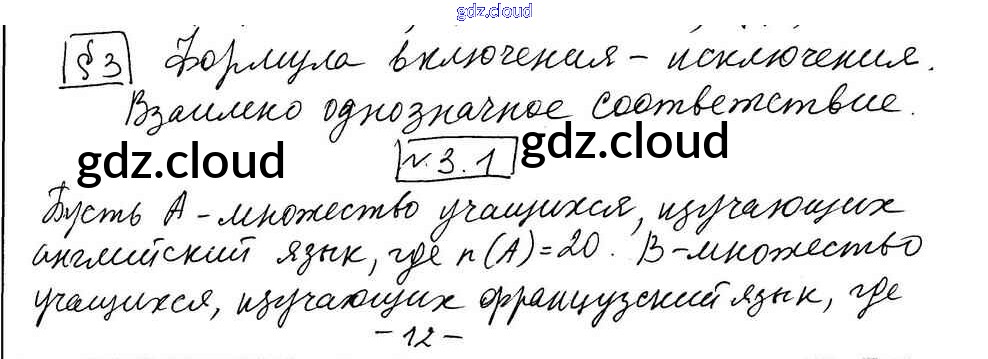 gdz.cloud
§3 Формула включения – исключения.
Взаимно однозначное соответствие.
gdz.cloud
№3.1
gdz.cloud
Пусть А – множество учащихся, изучающих
английский язык, где n(A)=20. В – множество
учащихся, изучающих французский язык, где
– 12 –